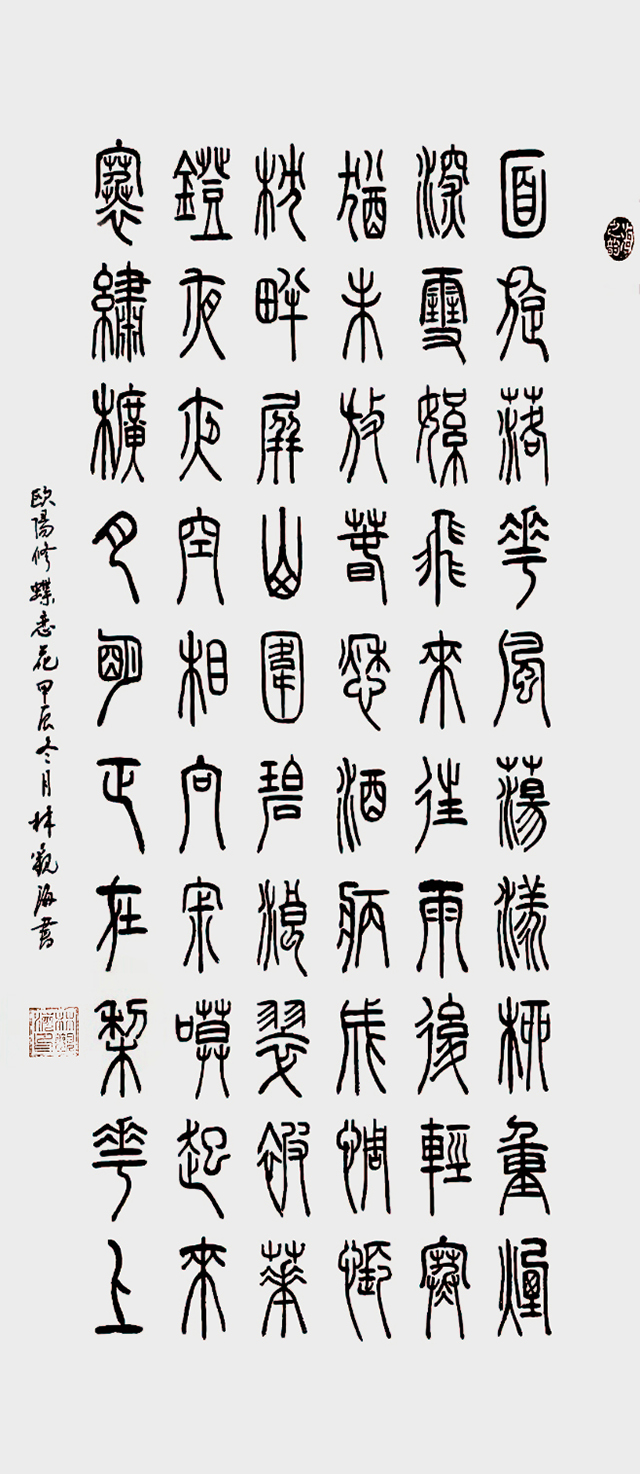 面旋落花風蕩漾柳重煙
深雪絮飛來往雨後輕寒
猶未放春愁酒病成惆悵
枕畔屏山圍碧浪翠被華
鐙夜夜空相向寂嗼起來
褰繡櫎月明正在梨花上
歐陽修蝶恋花甲辰冬月林觀海書